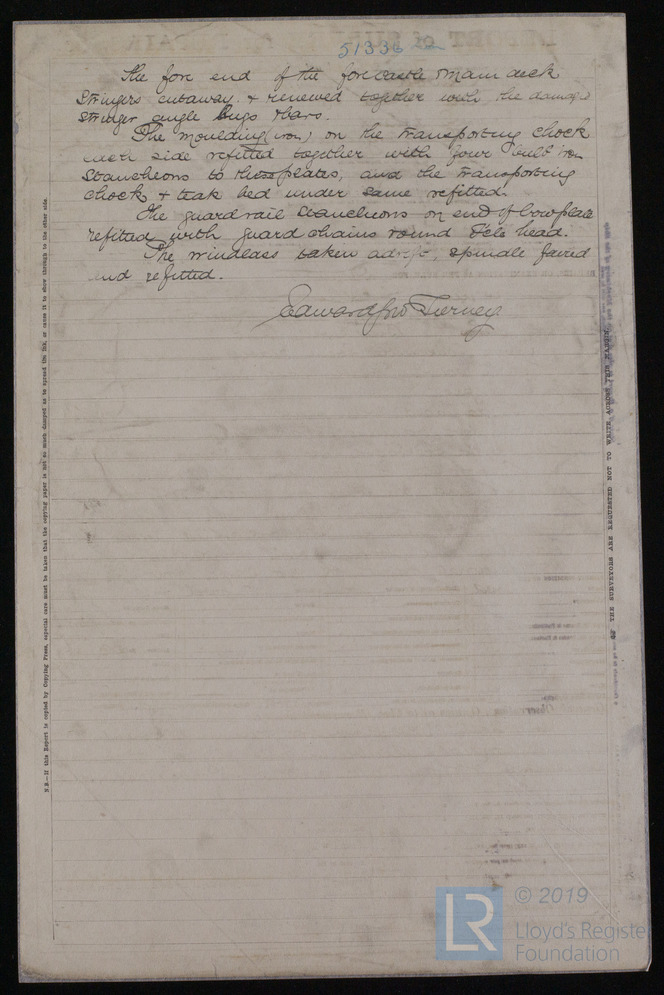 51336
The fore end of the forecastle main deck
stringers cutaway & renewed together with the damaged
stringer angle lugs & bars.
The moulding (iron) on the transporting chock
side refitted together with four built iron
stancheons to those plates, and the transporting
chock & teak bed under same refitted.
The guard rail stancheons on end of bowplate
refitted with guard chains round Fcle head.
The windlass taken adrift, spindle faired
and refitted.
Edward Jno Tierney
N.B.—If this Report is copied by Copying Press, especial care must be taken that the copying paper is not so much damped as to spread the ink, or cause it to show through to the other side.
THE SURVEYORS ARE REQUESTED NOT TO WRITE ACROSS THIS MARGIN.
LR
© 2019
Lloyd's Register
Foundation